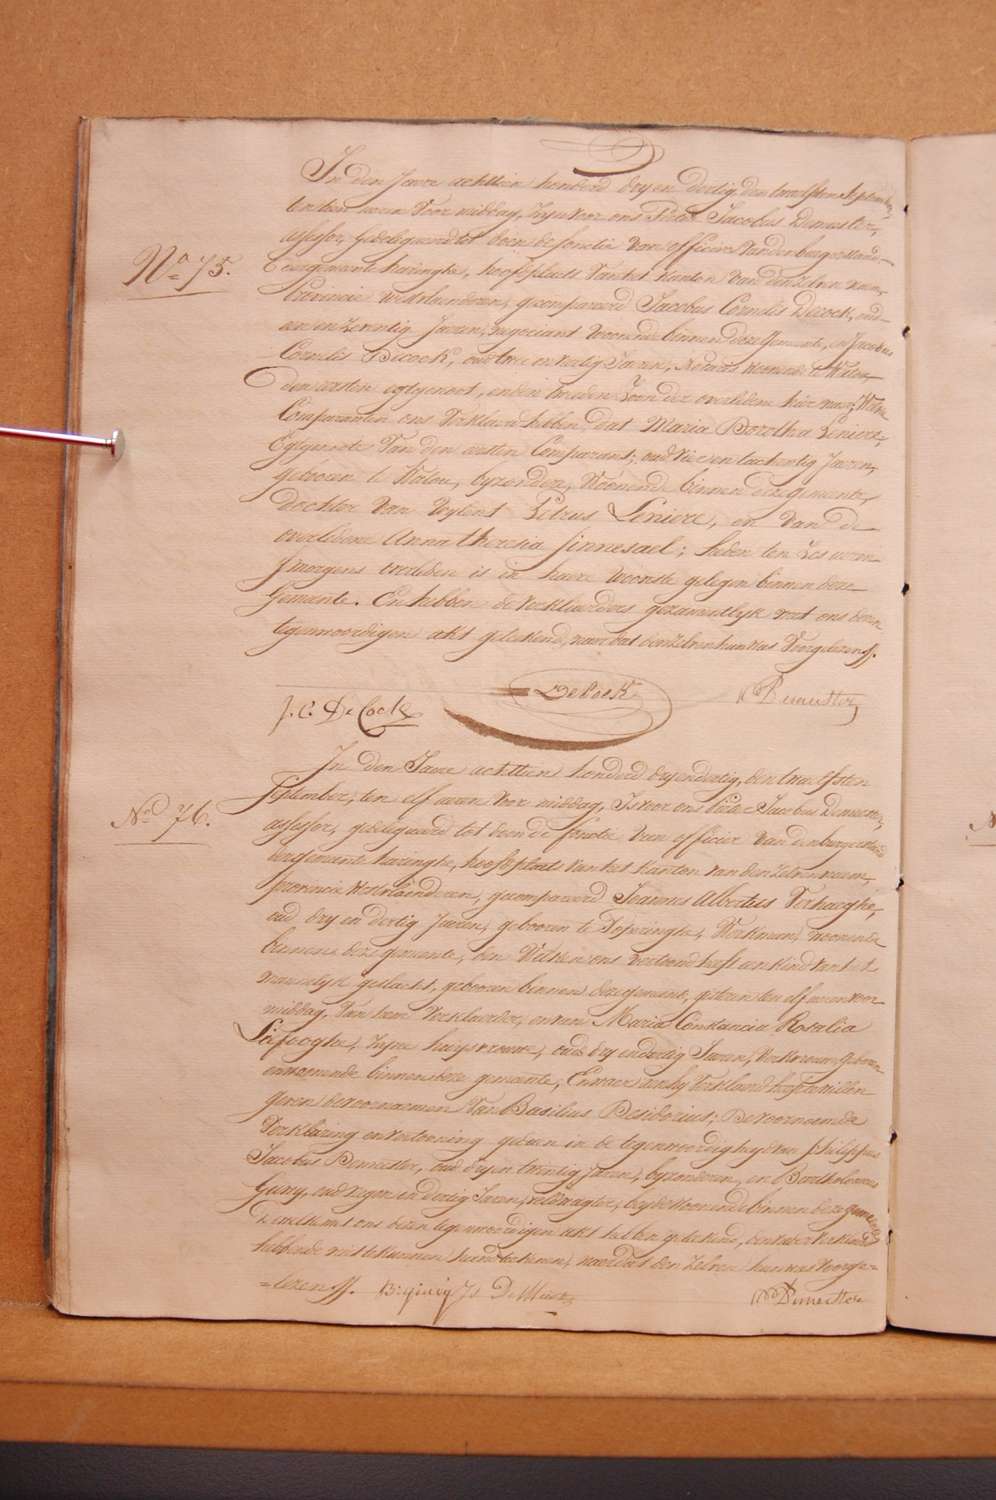 In den Jaere achttien honderd dry en dertig, den twaelfsten September,
ten tien uren voor middag, zyn voor ons Pieter Jacobus Demeester,
assessor, gedelegueerd tot doen de fonctie van officier van den burgerstand
Nª 75.
der gemeente haringhe, hoofdplaets van het kanton van den zelven naem,
provincie westvlaenderen, gecompareerd Jacobus Cornelis Decock, oud
en zeventig Jaeren, negociant woonende binnen deze gemeente, en Jacobus
Cornelis Decock, oud twee en veertig Jaeren, Notaris woonende te Watou
den eersten echtgenoot, en den tweeden zoon der overledene hier naer; Welke
Comparanten ons verklaerd hebben, dat Maria Dorothea Leniere,
Echtgenote van den eersten Comparant, oud vier en tachentig Jaeren,
geboren te Watou, byzondere, Woonende binnen deze gemeente,
dochter van wylent Petrus Leniere, en van de
overledene Anna theresia finnesael; heden ten zes uren
smorgens overleden is in haere wooninste gelegen binnen deze
Gemeente. En hebben de verklaerders gezamentlyk met ons dezen
tegenwoordigen akt geteekend, naer dat den zelven hun was voorgelezen ff.
J. C. De Cock
DeCock
P Demeester
In den Jaere achttien honderd dry en dertig, den twaelfsten
September, ten elf uren voor middag, Is voor ons Pieter Jacobus Demeester,
No 76.
assessor, gedelegueerd tot doen de fonctie van officier van den burgerstand
der gemeente haringhe, hoofdplaets van het kanton van den zelven naem,
provincie Westvlaenderen, gecompareerd Joannes Albertus Verhaeghe,
oud dry en dertig Jaeren, geboren te Poperinghe, Werkman, woonende
binnen deze gemeente, den Welken ons vertoond heeft een kind van het
mannelyk geslacht, geboren binnen deze gemeente, gisteren ten elf uren voor
middag, van hem verklaerder, en van Maria Constancia Rosalia
Lafooghe, zyne huysvrouwe, oud dry en dertig Jaeren, Werkvrouw, geboren
en woonende binnen deze gemeente, En waer aen hy verklaerd heeft te willen
geven de voornaemen van Basilius Desiderius; De voornoemde
verklaring en vertooning gedaen in de tegenwoordigheyd van philippus
Jacobus Demeester, oud dry en twintig Jaeren, byzonderen, en Bartholomeus
Guny, oud negen en dertig Jaeren, veldwagter, beyde woonende binnen deze gemeente
De welke met ons dezen tegenwoordigen akt hebben geteekend, den vader verklaerd
hebbende niet te kunnen teekenen, naer dat den zelven hun was voorge=
=lezen ff.
P Demeester